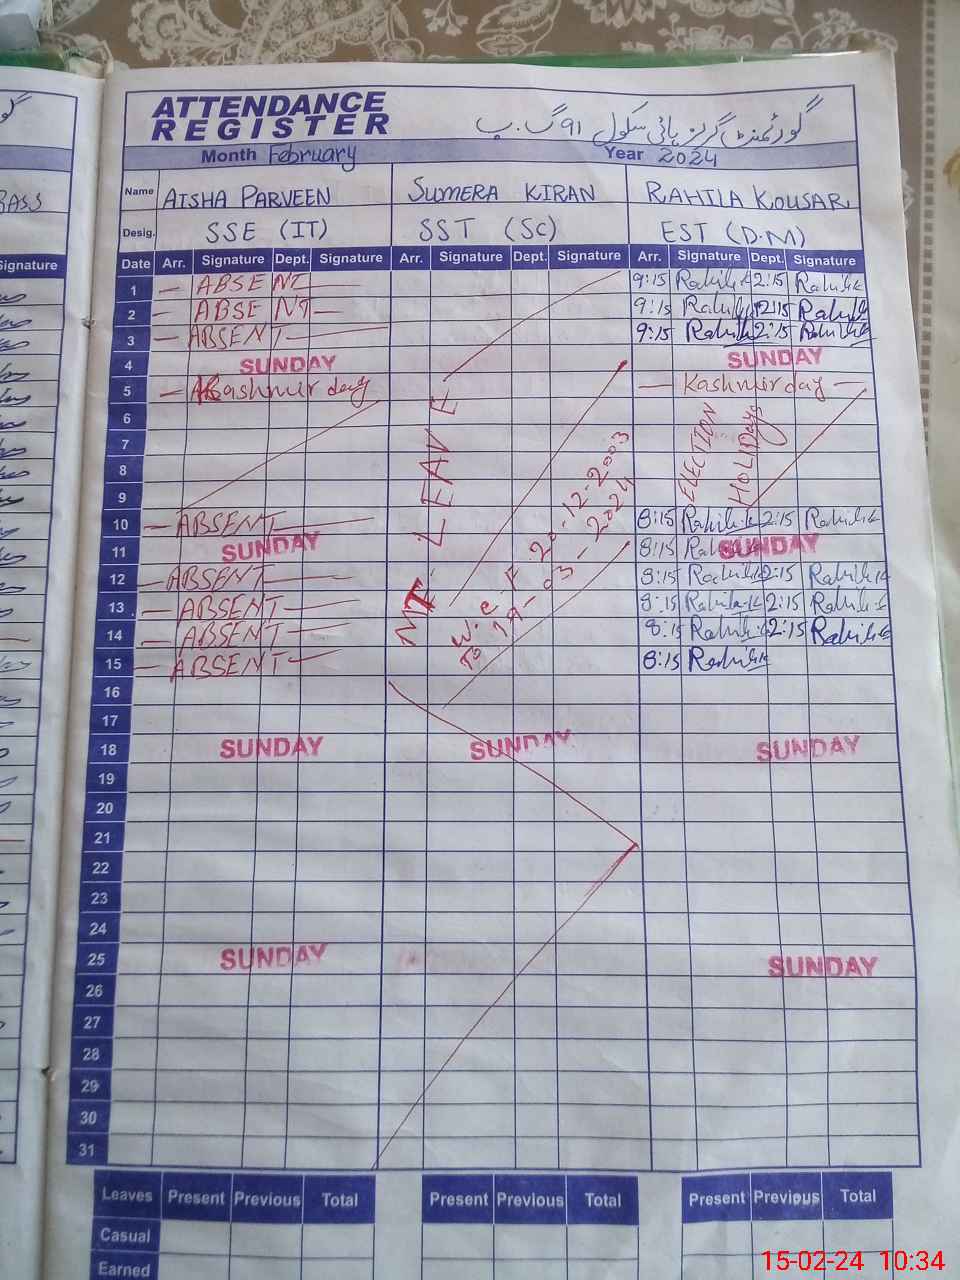 ATTENDANCE
REGISTER
گورنمنٹ گرلز ہائی سکول ۹۱ گ۔ب
Month February Year 2024
Name AISHA PARVEEN SUMERA KIRAN RAHILA KOUSAR
Desig. SSE (IT) SST (SC) EST (D.M)
Date Arr. Signature Dept. Signature Arr. Signature Dept. Signature Arr. Signature Dept. Signature
1 — ABSENT — 9:15 Rahila K 2:15 Rahila K
2 — ABSENT — 9:15 Rahila K 12:15 Rahila K
3 — ABSENT — 9:15 Rahila K 2:15 Rahila K
4 SUNDAY SUNDAY
5 — Kashmir day — Kashmir day —
6
7
8
9
ELECTION
HOLIDAYS
MT. LEAVE
W.e.F 20-12-2003
To 19-03-2024
10 — ABSENT — 8:15 Rahila K 2:15 Rahila K
11 SUNDAY 8:15 SUNDAY
12 — ABSENT — 8:15 Rahila K 2:15 Rahila K
13 — ABSENT — 8:15 Rahila K 2:15 Rahila K
14 — ABSENT — 8:15 Rahila K 2:15 Rahila K
15 — ABSENT — 8:15 Rahila K
16
17
18 SUNDAY SUNDAY SUNDAY
19
20
21
22
23
24
25 SUNDAY SUNDAY
26
27
28
29
30
31
Leaves Present Previous Total Present Previous Total Present Previous Total
Casual
Earned
BASS
Signature
15-02-24 10:34